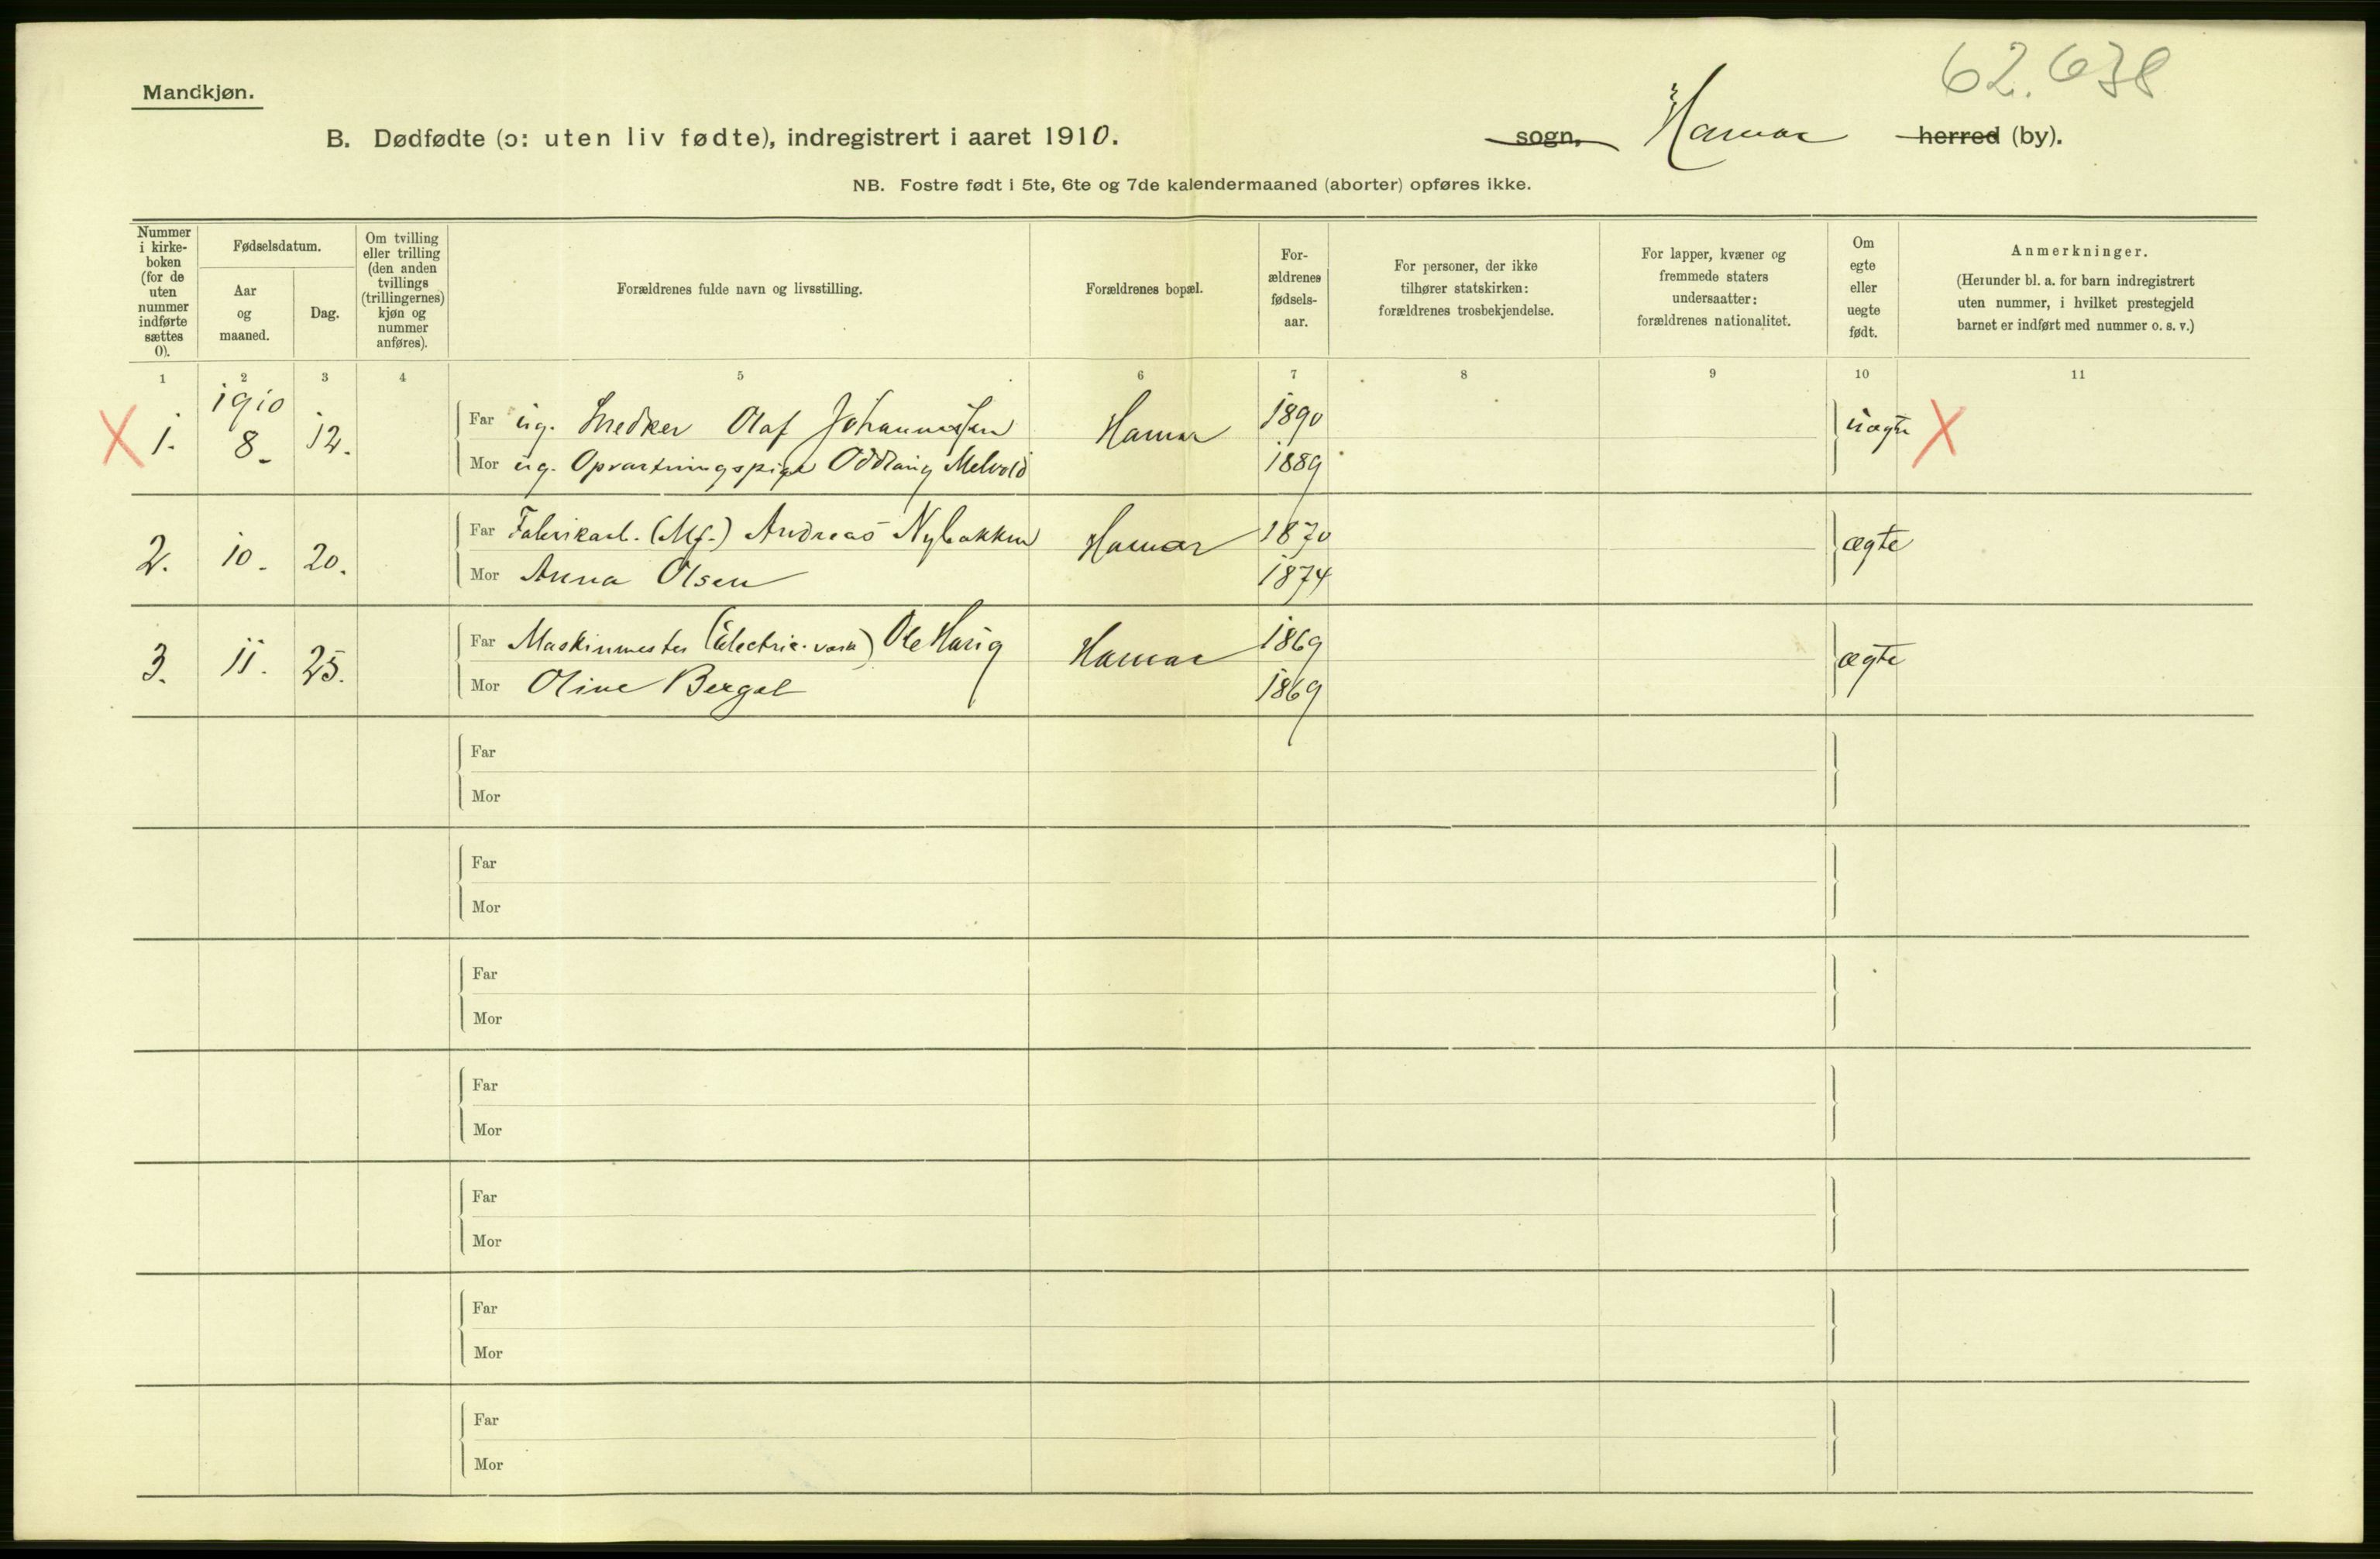 62.638
Mandkjøn.
B. Dødfødte (ɔ: uten liv fødte), indregistrert i aaret 1910.
sogn, Hamar herred (by).
NB. Fostre født i 5te, 6te og 7de kalendermaaned (aborter) opføres ikke.
Nummer i kirke-boken (for de uten nummer indførte sættes 0).
Fødselsdatum.
Aar og maaned.
Dag.
Om tvilling eller trilling (den anden tvillings (trillingernes) kjøn og nummer anføres).
Forældrenes fulde navn og livsstilling.
Forældrenes bopæl.
For-ældrenes fødsels-aar.
For personer, der ikke tilhører statskirken: forældrenes trosbekjendelse.
For lapper, kvæner og fremmede staters undersaatter: forældrenes nationalitet.
Om egte eller uegte født.
Anmerkninger.
(Herunder bl. a. for barn indregistrert uten nummer, i hvilket prestegjeld barnet er indført med nummer o. s. v.)
1 2 3 4 5 6 7 8 9 10 11
1910
X 1. 8. 12. Far ug. Snedker Olaf Johannessen Hamar 1890 uægte X
Mor ug. Opvartningspige Oddlaug Melvold 1889
2. 10. 20. Far Fabrikarb. (Mf.) Andreas Nybakken Hamar 1870 ægte
Mor Anna Olsen 1874
3. 11. 25. Far Maskinmester (Electric. værk) Ole Hasig Hamar 1869 ægte
Mor Oline Bergal 1869
Far
Mor
Far
Mor
Far
Mor
Far
Mor
Far
Mor
Far
Mor
Far
Mor